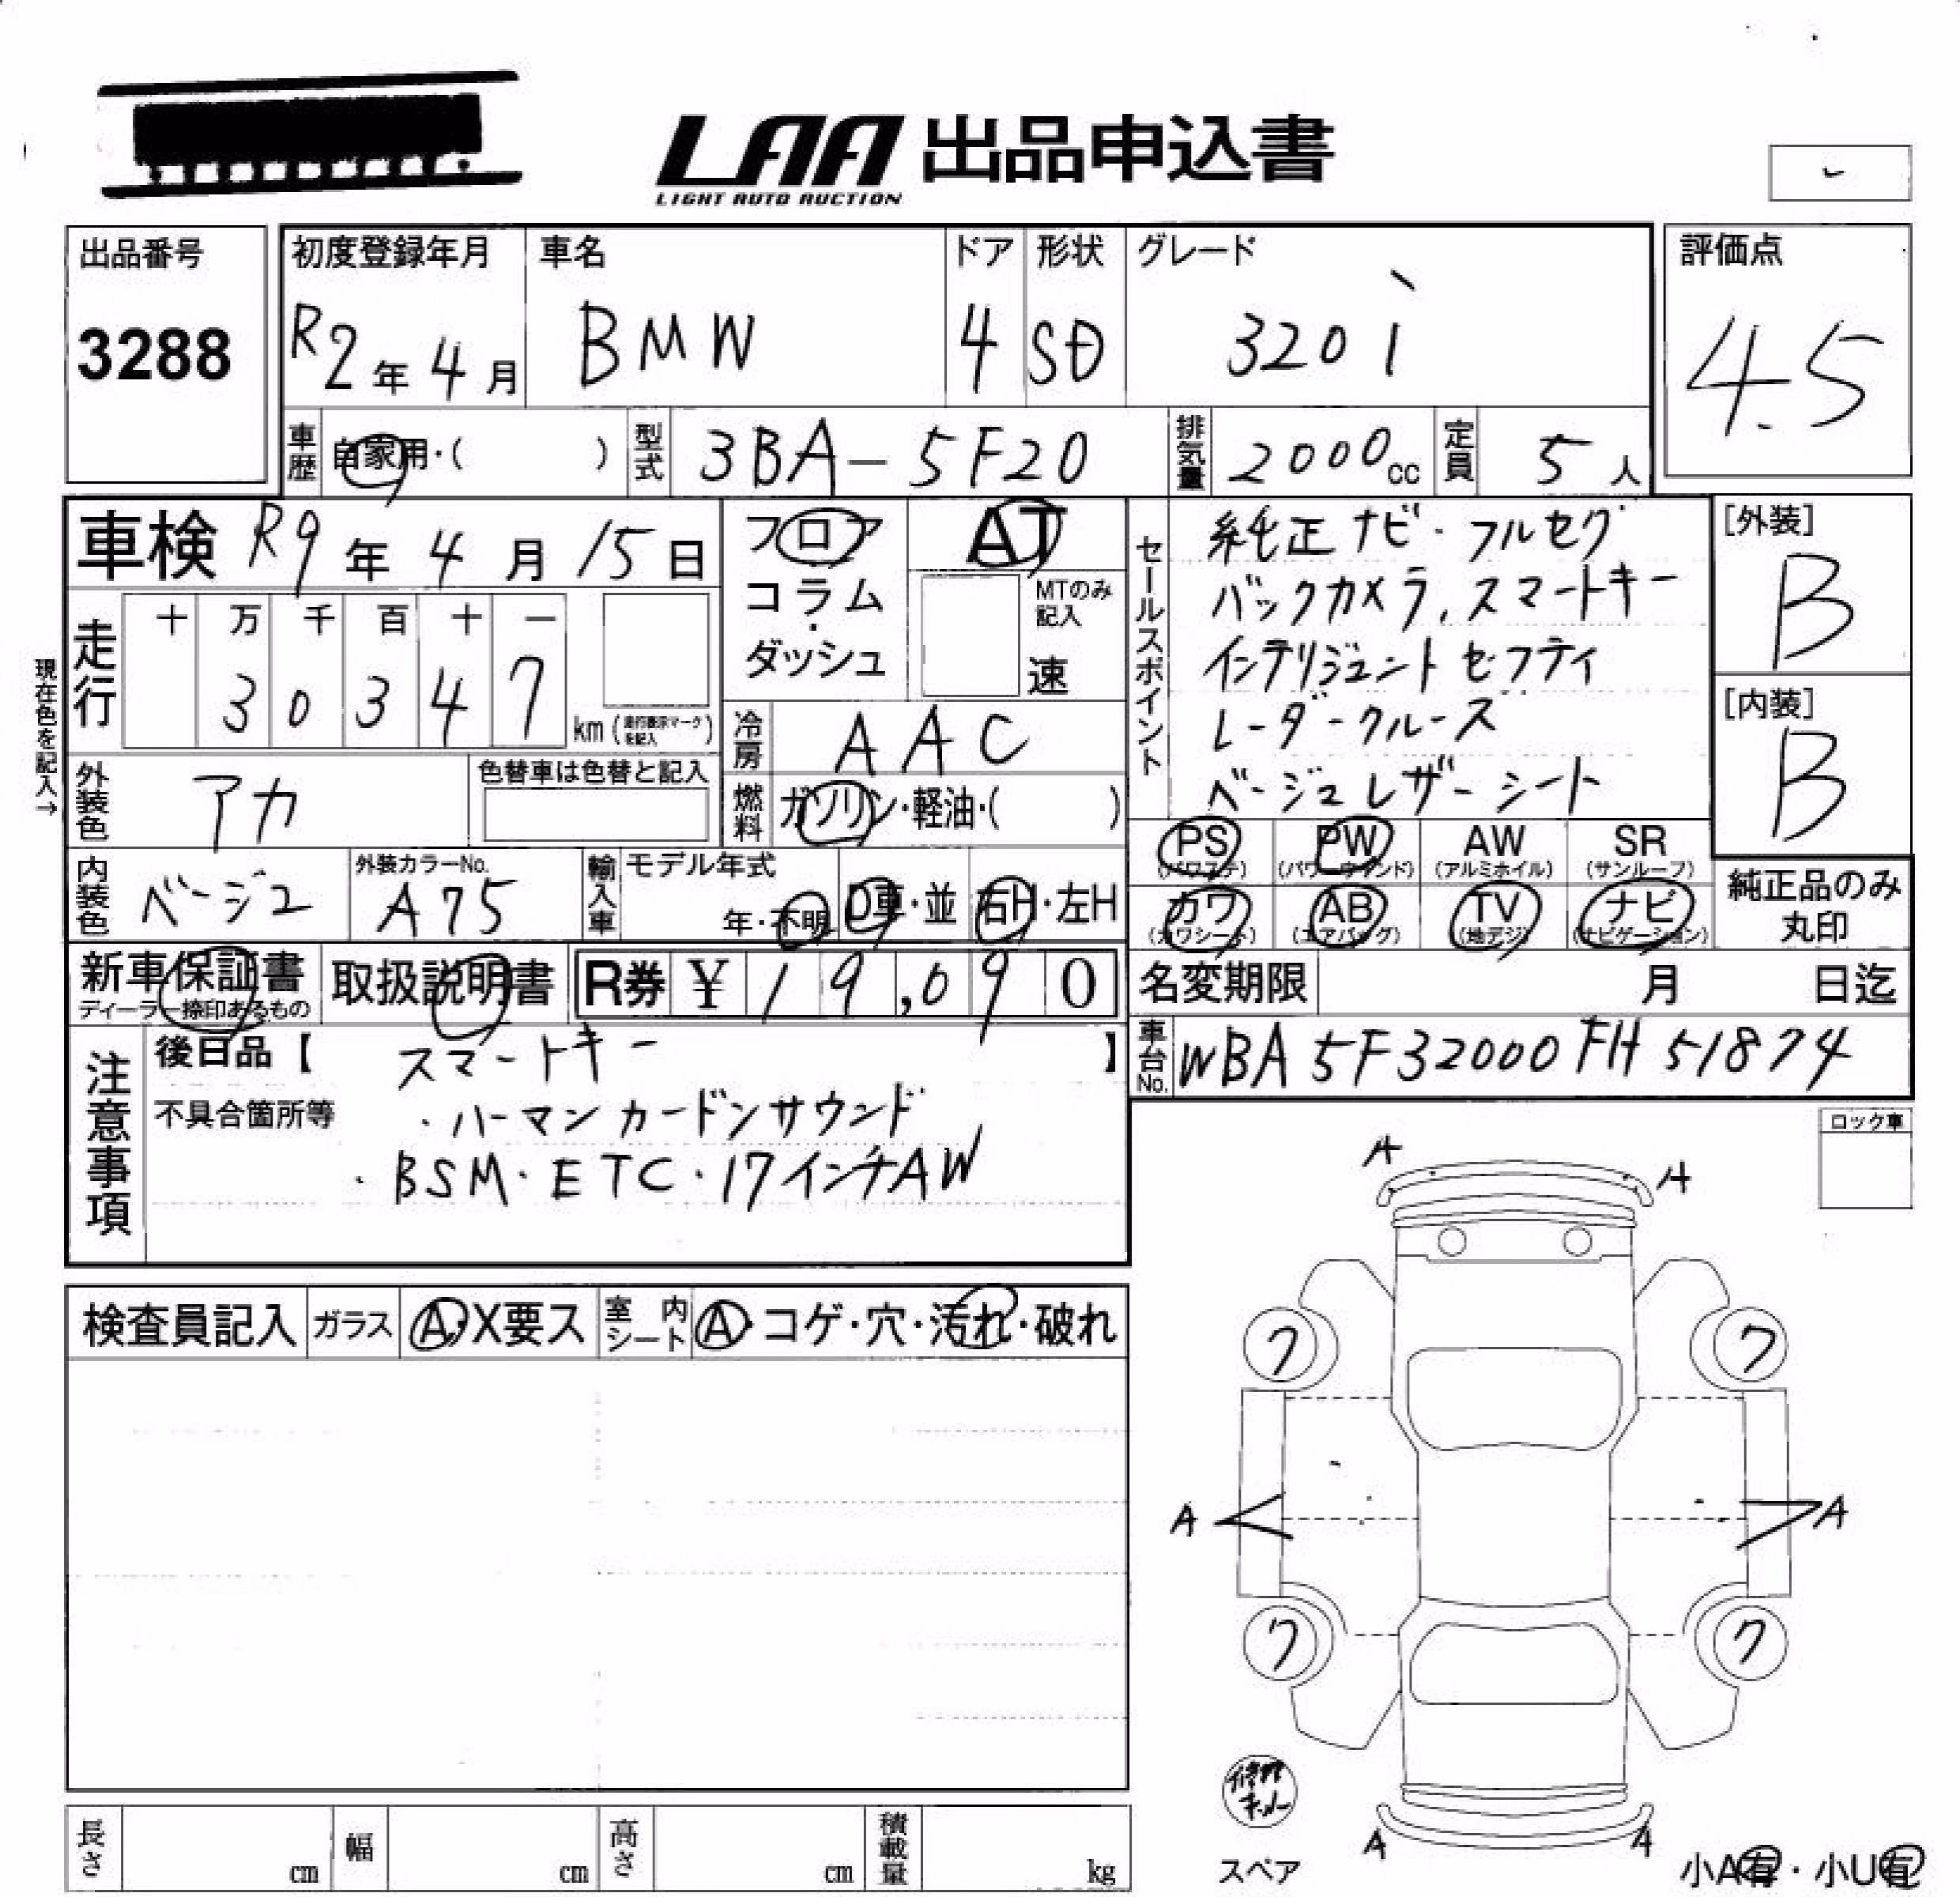 LAA 出品申込書
LIGHT AUTO AUCTION
出品番号
3288
初度登録年月
R2年4月
車名
BMW
ドア
4
形状
SD
グレード
320i
評価点
4.5
車歴
自家用・( )
型式
3BA-5F20
排気量
2000cc
定員
5人
車検 R9年4月15日
フロア
コラム
・
ダッシュ
AT
MTのみ
記入
速
現在色を記入→
走行
十 万 千 百 十 一
3 0 3 4 7
km (走行表示マークを記入)
冷房
AAC
燃料
ガソリン・軽油・( )
外装色
アカ
色替車は色替と記入
内装色
ベージュ
外装カラーNo.
A75
輸入車
モデル年式
年・不明
D車・並
右H・左H
セールスポイント
純正ナビ・フルセグ
バックカメラ、スマートキー
インテリジェントセーフティ
レーダークルーズ
ベージュレザーシート
[外装]
B
[内装]
B
PS
(パワステ)
PW
(パワーウィンド)
AW
(アルミホイル)
SR
(サンルーフ)
カワ
(カワシート)
AB
(エアバッグ)
TV
(地デジ)
ナビ
(ナビゲーション)
純正品のみ
丸印
新車保証書
ディーラー捺印あるもの
取扱説明書
R券 ¥ 19,090
名変期限 月 日迄
車台No.
WBA5F32000FH51874
注意事項
後日品【 スマートキー 】
不具合箇所等 ・ハーマンカードンサウンド
・BSM・ETC・17インチAW
ロック車
検査員記入
ガラス
A・X要ス
室内シート
A・コゲ・穴・汚れ・破れ
A A
ワ ワ
A A
ワ ワ
修理
キット
A A
スペア
小A有・小U有
長さ cm
幅 cm
高さ cm
積載量 kg